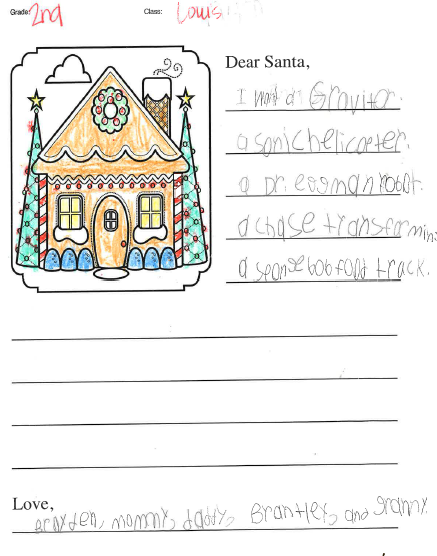 Grade: 2nd Class: Louis
Dear Santa,
I want a Gravitor.
a sonic helicopter.
a Dr. eggman robot.
a chase transformin
a sponsebob food track.
Love,
Braxden, mommy, daddy, Brantley, and granny